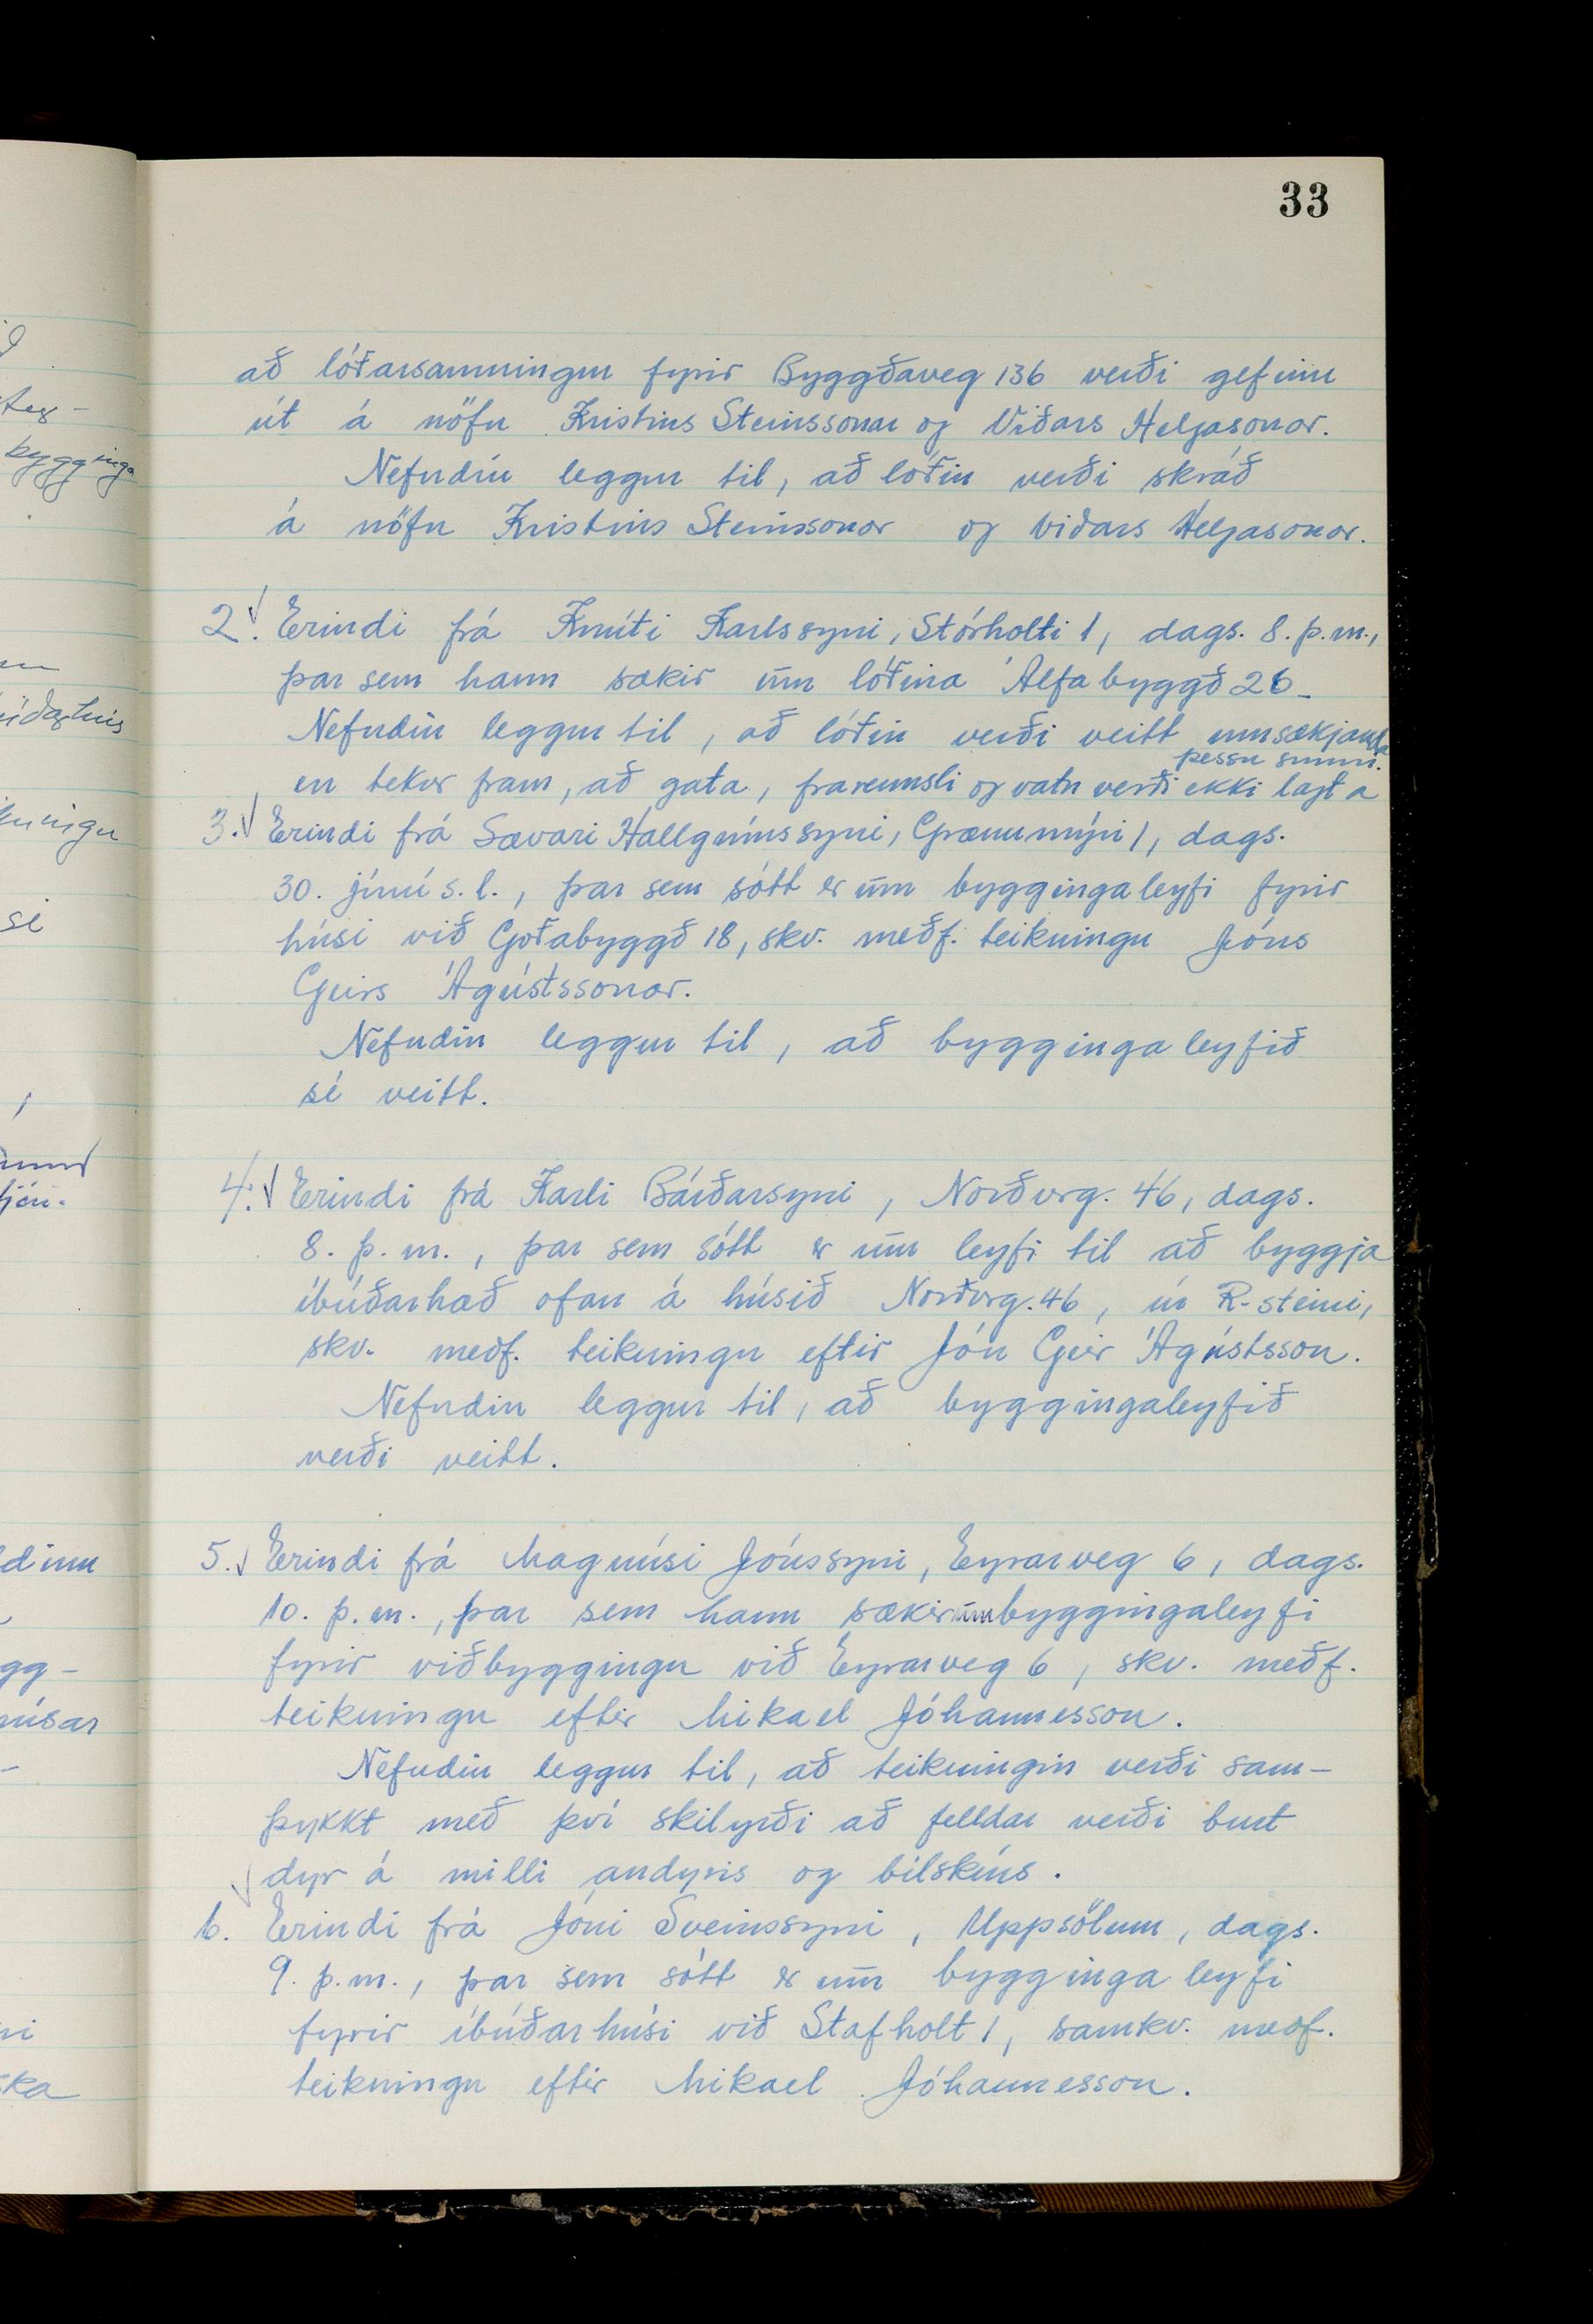 33
að lóðarsamningur fyrir Byggðaveg 136 verði gefinn
út á nöfn Kristins Steinssonar og Viðars Helgasonar.
Nefndin leggur til, að lóðin verði skráð
á nöfn Kristins Steinssonar og Viðars Helgasonar.
2. Erindi frá Knúti Karlssyni, Stórholti 1, dags. 8. þ.m.,
þar sem hann sækir um lóðina Álfabyggð 26_
Nefndin leggur til, að lóðin verði veitt umsækjanda
þessu sumri.
en tekur fram, að gata, frárennsli og vatn verði ekki lagt á
3. Erindi frá Sævari Hallgrímssyni, Grænumýri 1, dags.
30. júní s.l., þar sem sótt er um byggingaleyfi fyrir
húsi við Goðabyggð 18, skv. meðf. teikningu Jóns
Geirs Ágústssonar.
Nefndin leggur til, að byggingaleyfið
sé veitt.
4. Erindi frá Karli Bárðarsyni, Norðurg. 46, dags.
8. þ.m., þar sem sótt er um leyfi til að byggja
íbúðarhæð ofan á húsið Norðurg. 46, úr R-steini,
skv. meðf. teikningu eftir Jón Geir Ágústsson.
Nefndin leggur til, að byggingaleyfið
verði veitt.
5. Erindi frá Magnúsi Jónssyni, Eyrarveg 6, dags.
10. þ.m., þar sem hann sækir um byggingaleyfi
fyrir viðbyggingu við Eyrarveg 6, skv. meðf.
teikningu eftir Mikael Jóhannesson.
Nefndin leggur til, að teikningin verði sam-
þykkt með því skilyrði að felldar verði burt
dyr á milli andyris og bílskúrs.
6. Erindi frá Jóni Sveinssyni, Uppsölum, dags.
9. þ.m., þar sem sótt er um byggingaleyfi
fyrir íbúðarhúsi við Stafholt 1, samkv. meðf.
teikningu eftir Mikael Jóhannesson.